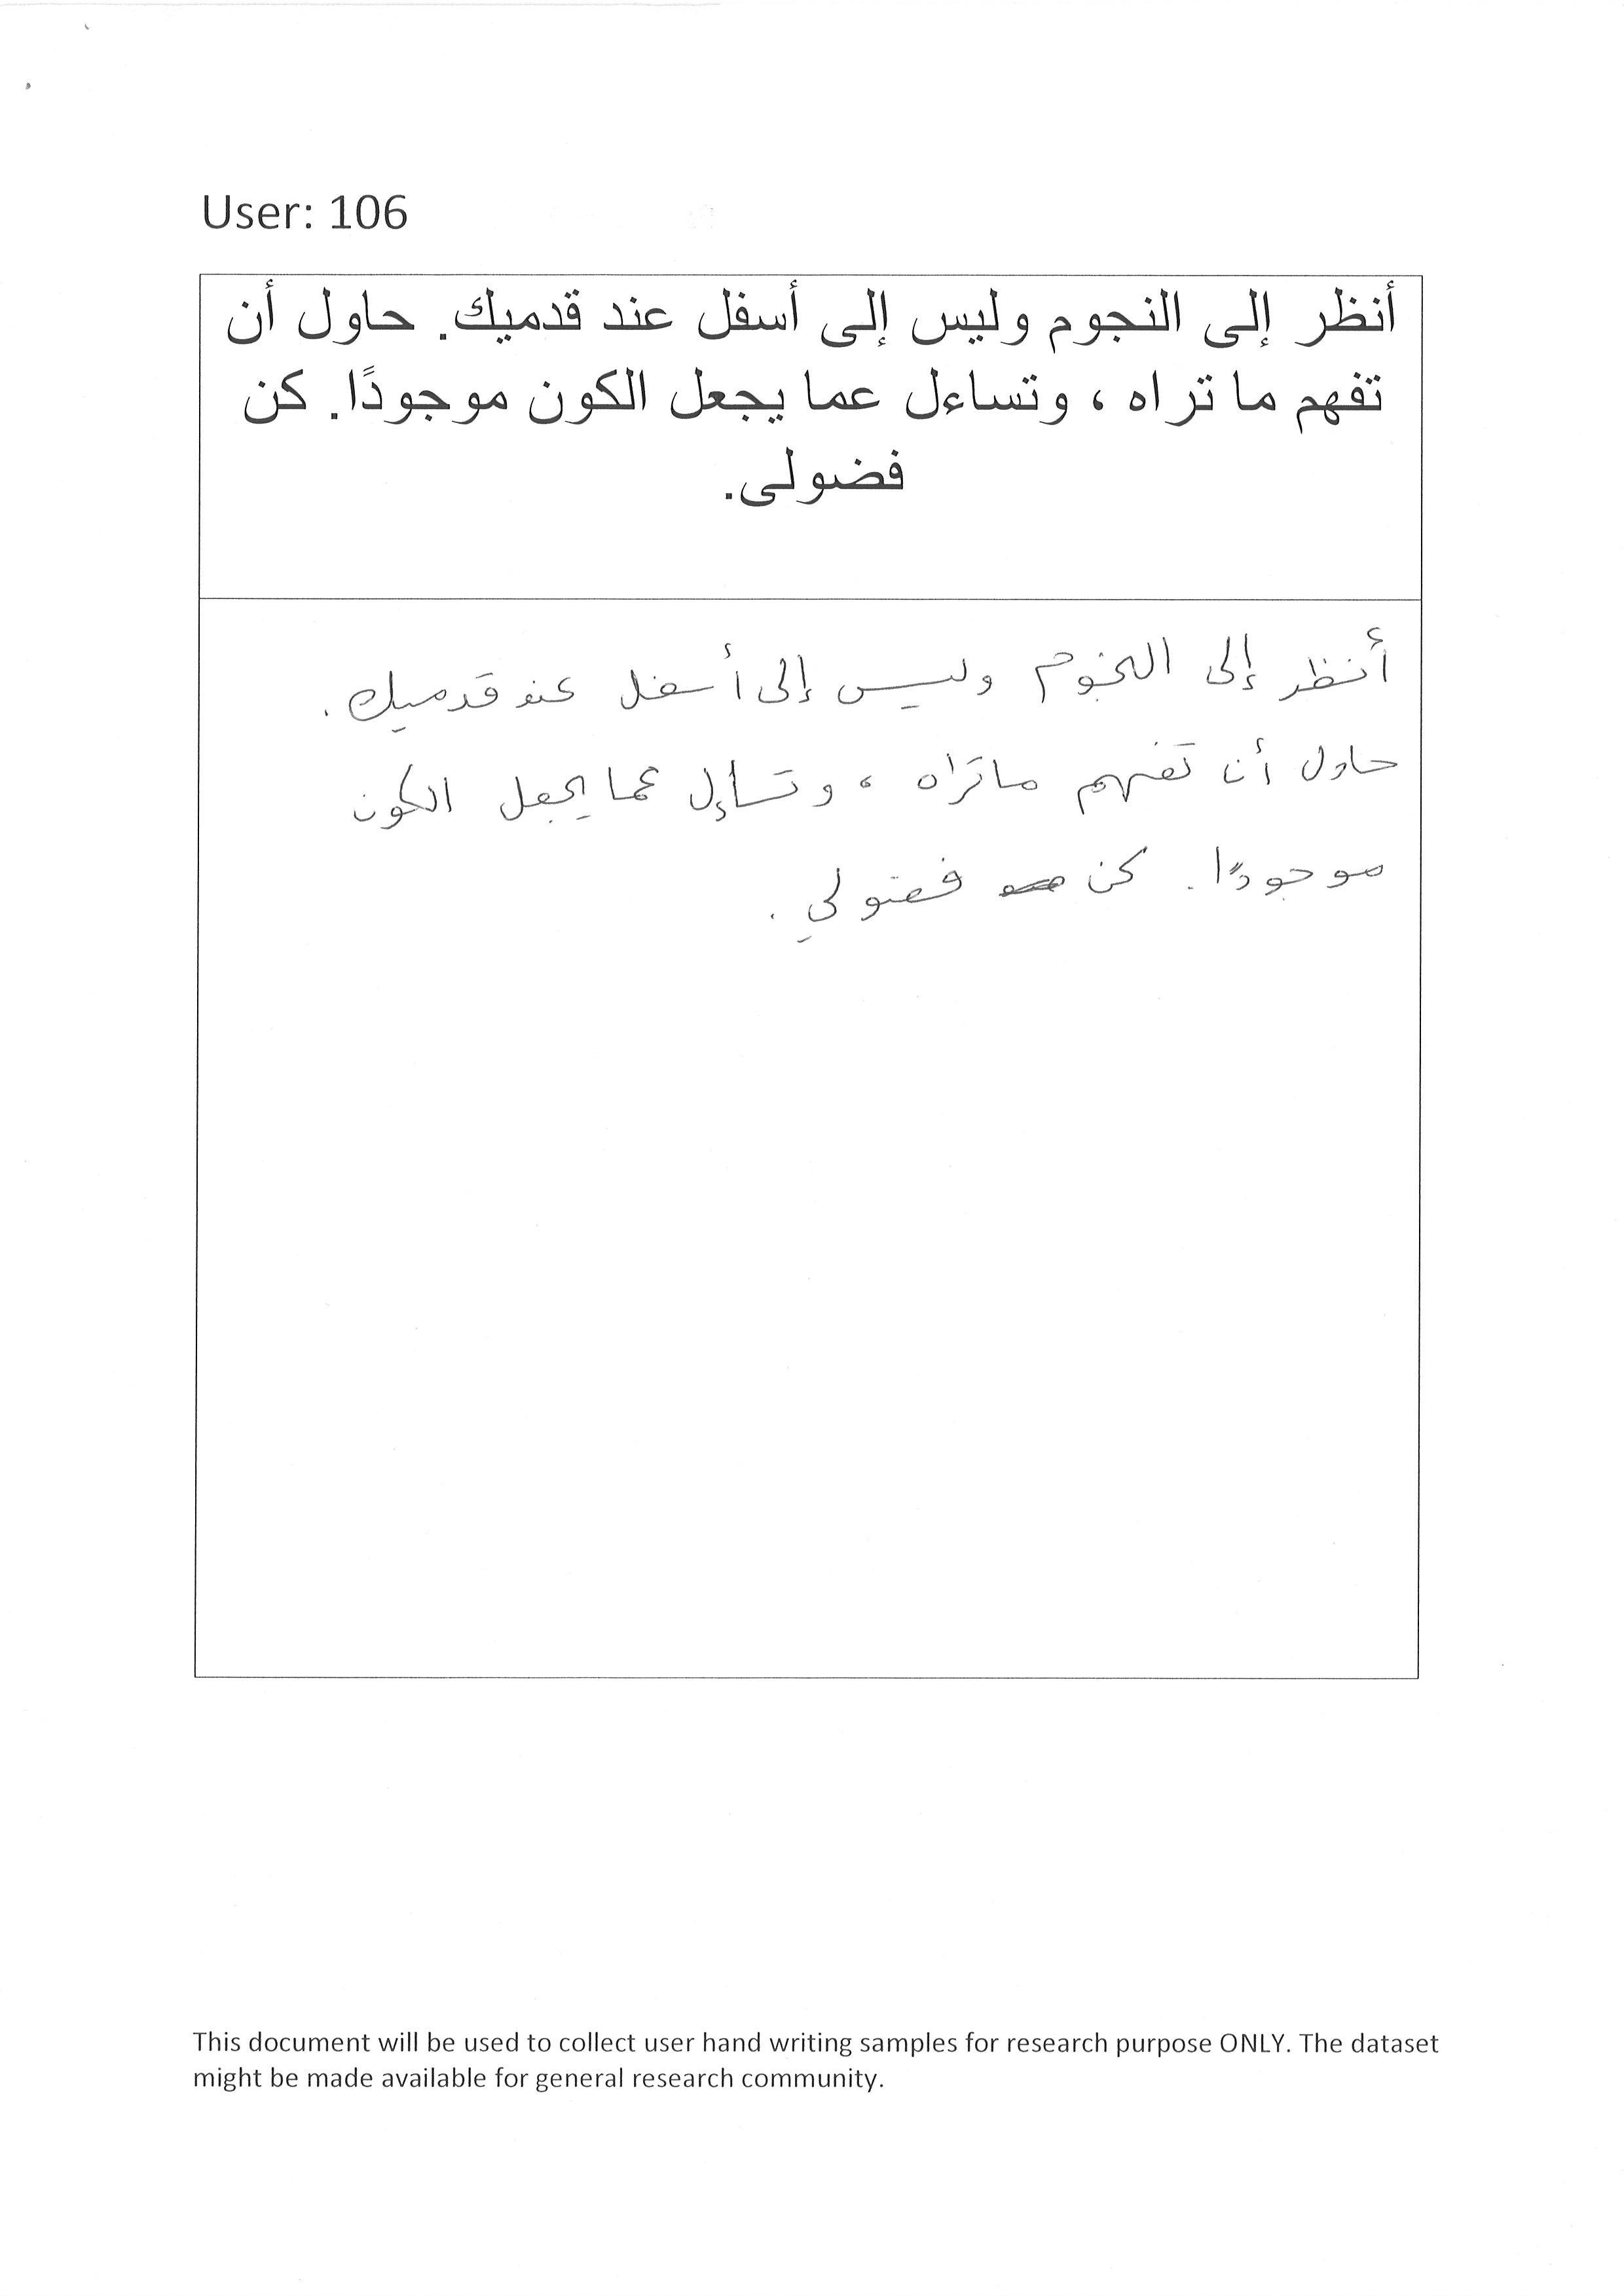 User: 106
أنظر إلى النجوم وليس إلى أسفل عند قدميك. حاول أن
تفهم ما تراه ، وتساءل عما يجعل الكون موجودًا. كن
فضولى.
أنظر إلى النجوم وليس إلى أسفل عند قدميك.
حاول أن تفهم ماتراه ، وتساءل عما يجعل الكون
موجودًا. كن فضولي.
This document will be used to collect user hand writing samples for research purpose ONLY. The dataset
might be made available for general research community.